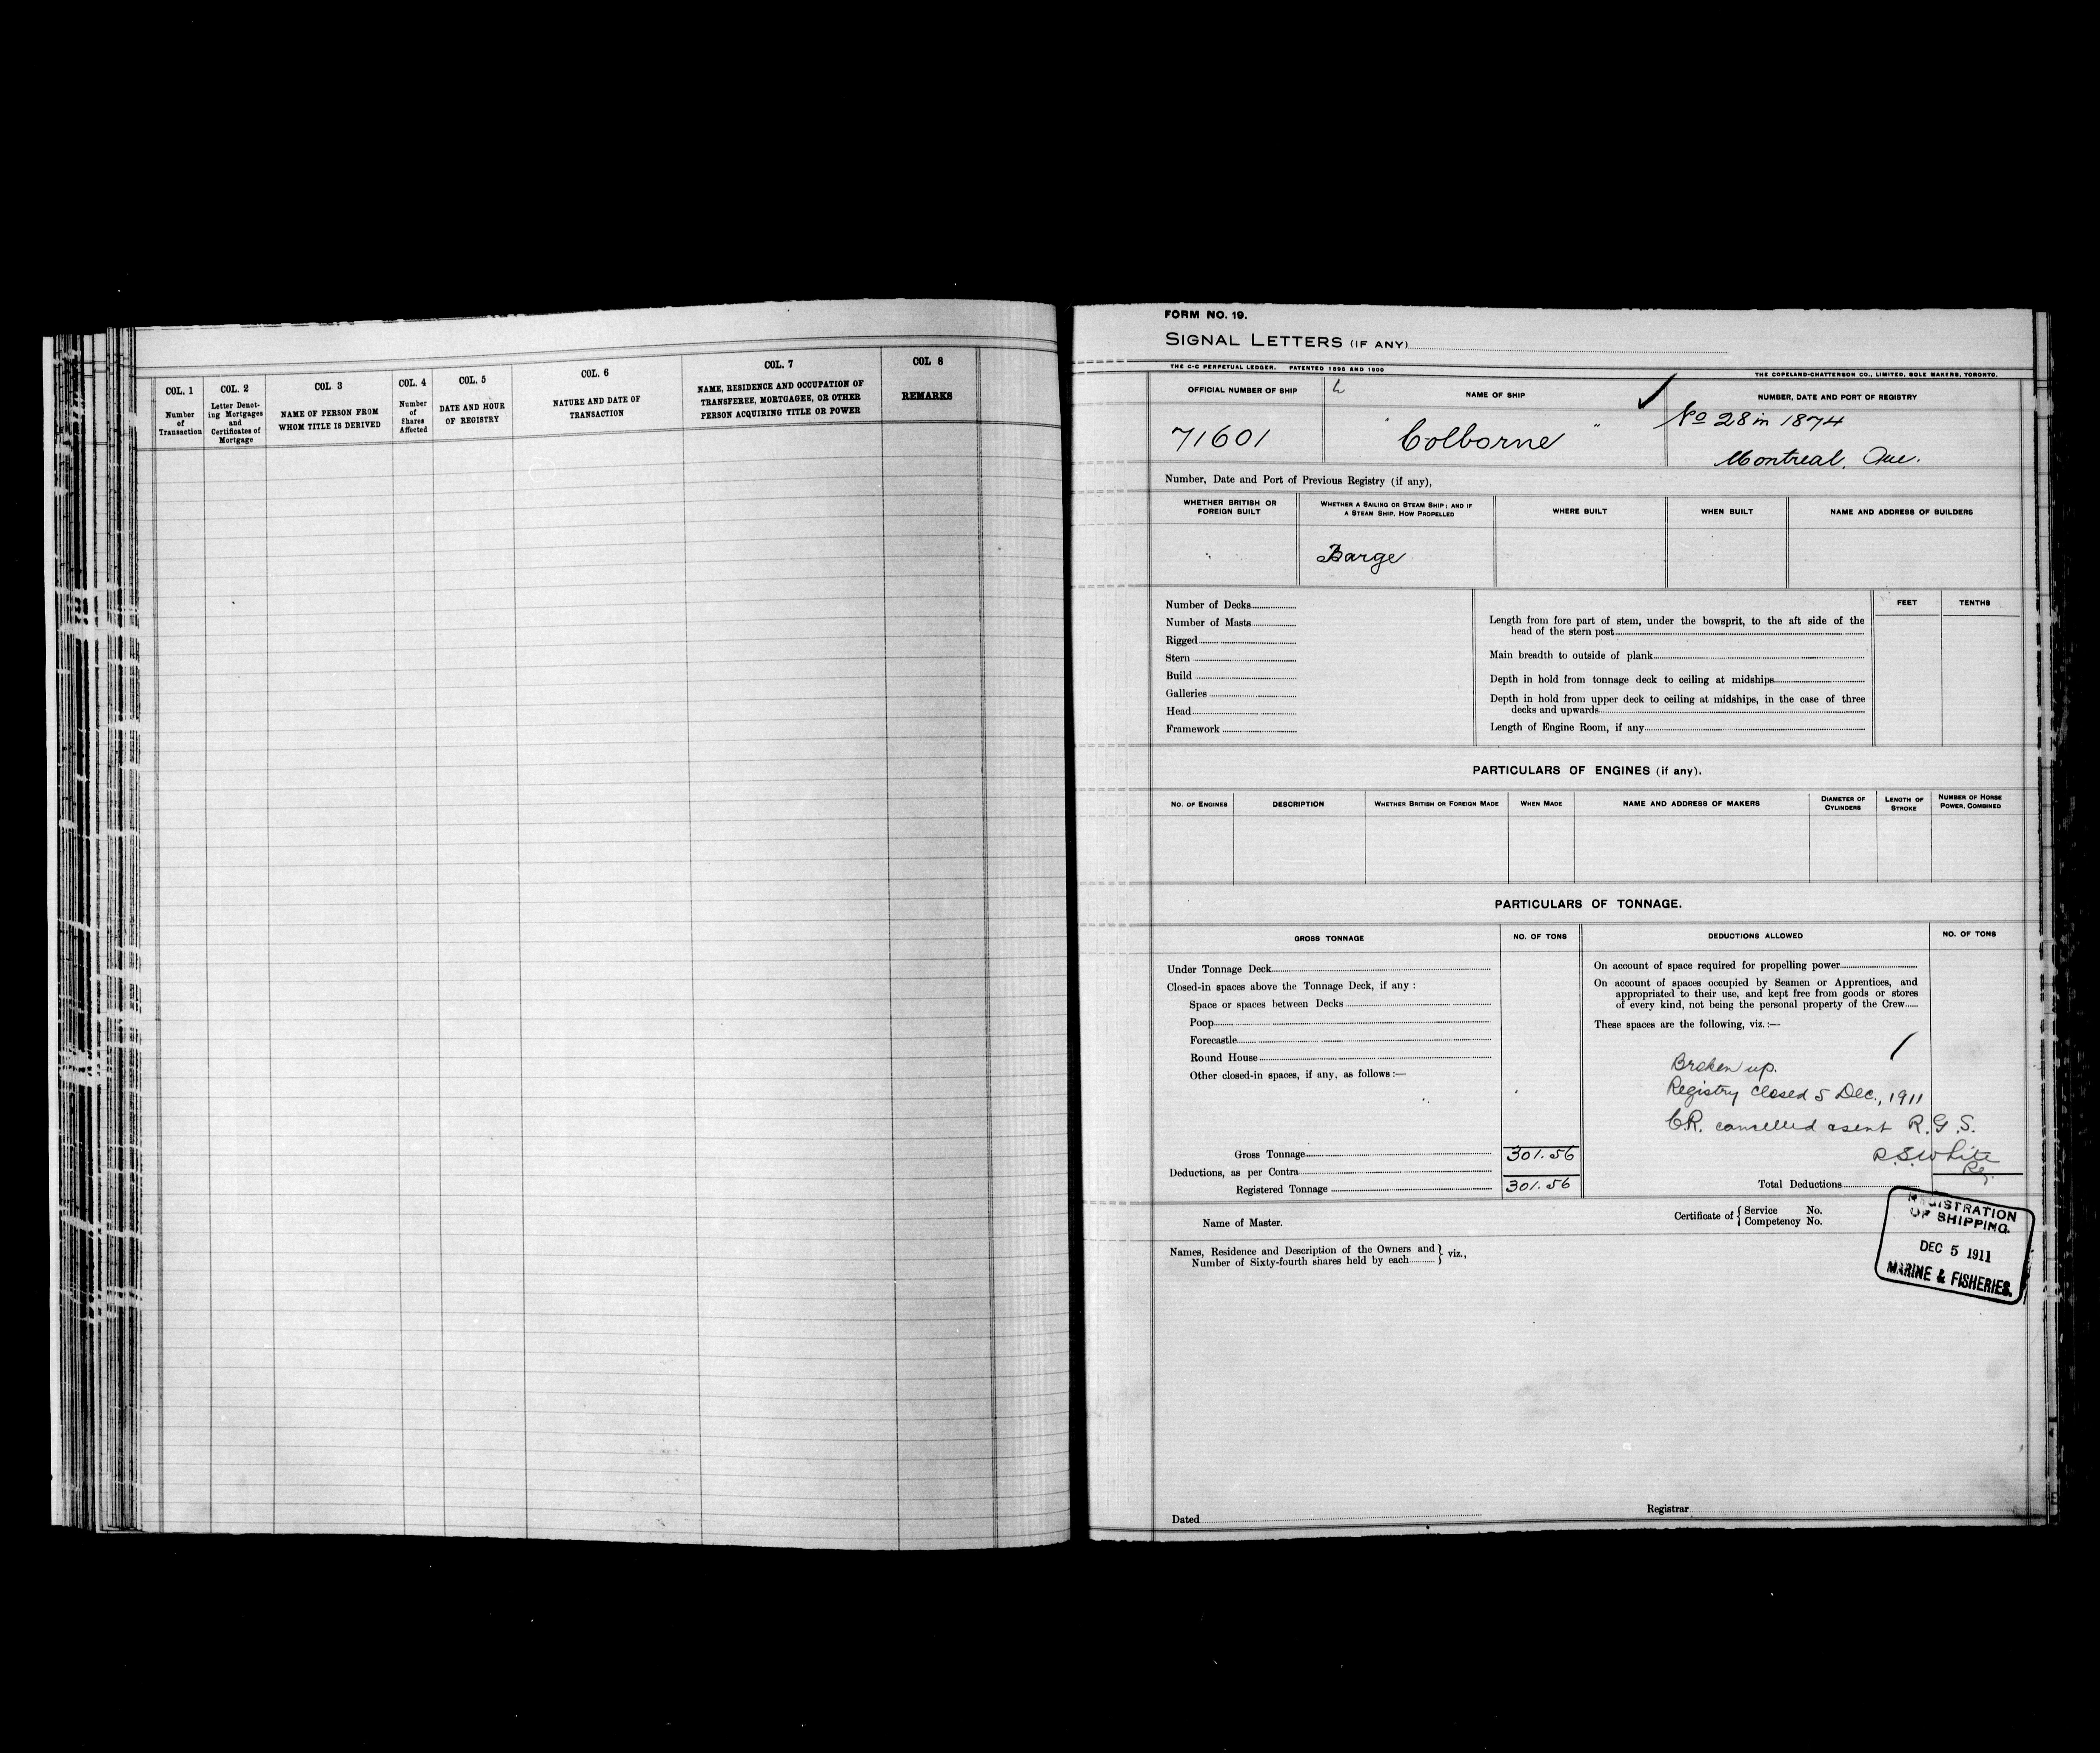 COL. 1
Number
of
Transaction
COL. 2
Letter Denot-
ing Mortgages
and
Certificates of
Mortgage
COL. 3
NAME OF PERSON FROM
WHOM TITLE IS DERIVED
COL. 4
Number
of
Shares
Affected
COL. 5
DATE AND HOUR
OF REGISTRY
COL. 6
NATURE AND DATE OF
TRANSACTION
COL. 7
NAME, RESIDENCE AND OCCUPATION OF
TRANSFEREE, MORTGAGEE, OR OTHER
PERSON ACQUIRING TITLE OR POWER
COL 8
REMARKS
FORM NO. 19.
SIGNAL LETTERS (IF ANY)
THE C-C PERPETUAL LEDGER. PATENTED 1896 AND 1900
THE COPELAND-CHATTERSON CO., LIMITED, SOLE MAKERS, TORONTO.
OFFICIAL NUMBER OF SHIP
NAME OF SHIP
NUMBER, DATE AND PORT OF REGISTRY
71601
"Colborne"
No 28 in 1874
Montreal, Que.
Number, Date and Port of Previous Registry (if any),
WHETHER BRITISH OR
FOREIGN BUILT
WHETHER A SAILING OR STEAM SHIP; AND IF
A STEAM SHIP, HOW PROPELLED
WHERE BUILT
WHEN BUILT
NAME AND ADDRESS OF BUILDERS
Barge
Number of Decks
Number of Masts
Rigged
Stern
Build
Galleries
Head
Framework
FEET
TENTHS
Length from fore part of stem, under the bowsprit, to the aft side of the
head of the stern post
Main breadth to outside of plank
Depth in hold from tonnage deck to ceiling at midships
Depth in hold from upper deck to ceiling at midships, in the case of three
decks and upwards
Length of Engine Room, if any
PARTICULARS OF ENGINES (if any).
NO. OF ENGINES
DESCRIPTION
WHETHER BRITISH OR FOREIGN MADE
WHEN MADE
NAME AND ADDRESS OF MAKERS
DIAMETER OF
CYLINDERS
LENGTH OF
STROKE
NUMBER OF HORSE
POWER, COMBINED
PARTICULARS OF TONNAGE.
GROSS TONNAGE
NO. OF TONS
DEDUCTIONS ALLOWED
NO. OF TONS
Under Tonnage Deck
Closed-in spaces above the Tonnage Deck, if any :
Space or spaces between Decks
Poop
Forecastle
Round House
Other closed-in spaces, if any, as follows :—
Gross Tonnage
301.56
Deductions, as per Contra
Registered Tonnage
301.56
On account of space required for propelling power
On account of spaces occupied by Seamen or Apprentices, and
appropriated to their use, and kept free from goods or stores
of every kind, not being the personal property of the Crew
These spaces are the following, viz. :—
Broken up.
Registry closed 5 Dec., 1911
C.R. cancelled & sent R.G.S.
R.S. White
Reg.
Total Deductions
Name of Master.
Certificate of { Service No.
Competency No.
REGISTRATION
OF SHIPPING.
DEC 5 1911
MARINE & FISHERIES.
Names, Residence and Description of the Owners and } viz.,
Number of Sixty-fourth shares held by each
Dated
Registrar